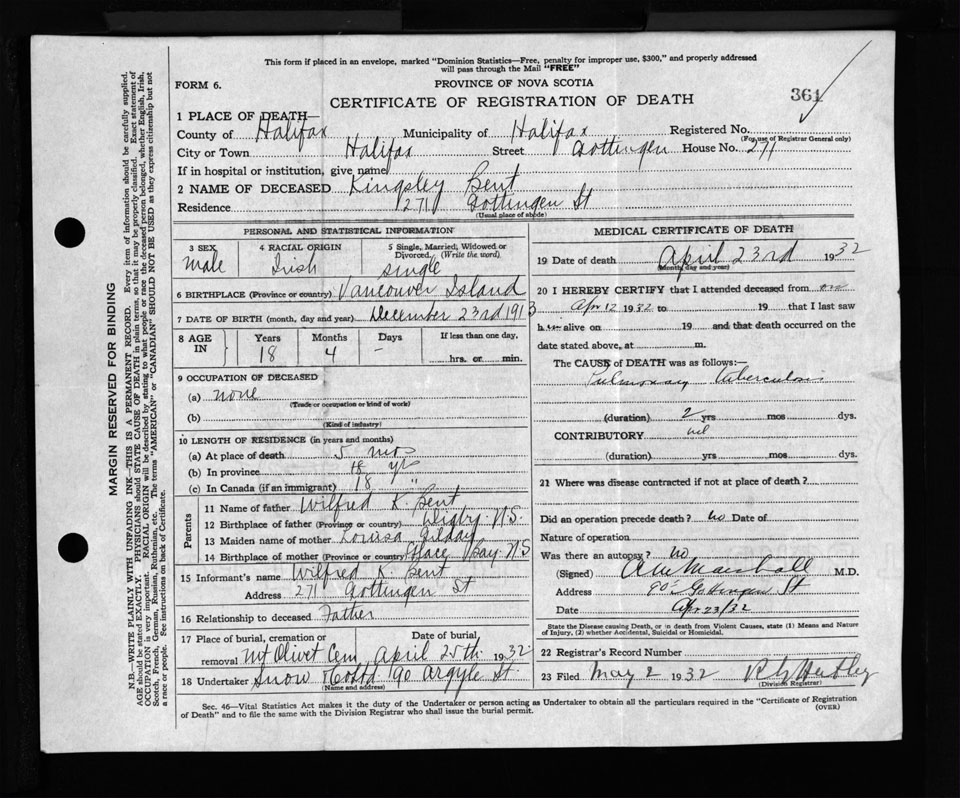 This form if placed in an envelope, marked "Dominion Statistics—Free, penalty for improper use, $300," and properly addressed
will pass through the Mail "FREE"
FORM 6.
PROVINCE OF NOVA SCOTIA
CERTIFICATE OF REGISTRATION OF DEATH
361
1 PLACE OF DEATH—
County of Halifax Municipality of Halifax Registered No.
(For use of Registrar General only)
City or Town Halifax Street Gottingen House No. 271
If in hospital or institution, give name
2 NAME OF DECEASED Kingsley Bent
Residence 271 Gottingen St
(Usual place of abode)
PERSONAL AND STATISTICAL INFORMATION
3 SEX Male
4 RACIAL ORIGIN Irish
5 Single, Married, Widowed or Divorced. (Write the word) single
6 BIRTHPLACE (Province or country) Vancouver Island
7 DATE OF BIRTH (month, day and year) December 23rd 1913
8 AGE IN Years 18 Months 4 Days - If less than one day, hrs. or min.
9 OCCUPATION OF DECEASED
(a) none
(Trade or occupation or kind of work)
(b)
(Kind of industry)
10 LENGTH OF RESIDENCE (in years and months)
(a) At place of death 5 mos
(b) In province 18 yrs
(c) In Canada (if an immigrant) 18 "
Parents
11 Name of father Wilfred K. Bent
12 Birthplace of father (Province or country) Digby. N.S.
13 Maiden name of mother Louisa Gilday
14 Birthplace of mother (Province or country) Glace Bay. N S
15 Informant's name Wilfred K. Bent
Address 271 Gottingen St
16 Relationship to deceased Father
17 Place of burial, cremation or removal Mt Olivet Cem Date of burial April 25th 1932
18 Undertaker Snow & Co Ltd 90 Argyle St
(Name and address)
MEDICAL CERTIFICATE OF DEATH
19 Date of death April 23rd 1932
(Month, day and year)
20 I HEREBY CERTIFY that I attended deceased from on
Apr 12 1932 to 19 that I last saw
h alive on 19 and that death occurred on the
date stated above, at m.
The CAUSE of DEATH was as follows:—
Pulmonary tuberculosis
(duration) 2 yrs mos dys.
CONTRIBUTORY nil
(duration) yrs mos dys.
21 Where was disease contracted if not at place of death?
Did an operation precede death? No Date of
Nature of operation
Was there an autopsy? No
(Signed) A W Marshall M.D.
Address Gottingen St
Date Apr 23/32
State the Disease causing Death, or in death from Violent Causes, state (1) Means and Nature
of Injury, (2) whether Accidental, Suicidal or Homicidal.
22 Registrar's Record Number
23 Filed May 2 1932
(Division Registrar)
Sec. 46—Vital Statistics Act makes it the duty of the Undertaker or person acting as Undertaker to obtain all the particulars required in the "Certificate of Registration
of Death" and to file the same with the Division Registrar who shall issue the burial permit.
(OVER)
MARGIN RESERVED FOR BINDING
N.B.—WRITE PLAINLY WITH UNFADING INK—THIS IS A PERMANENT RECORD. Every item of information should be carefully supplied.
AGE should be stated EXACTLY. PHYSICIANS should STATE CAUSE OF DEATH in plain terms, so that it may be properly classified. Exact statement of
OCCUPATION is very important. RACIAL ORIGIN will be described by stating to what people or race the deceased person belonged, whether English, Irish,
Scotch, French, German, Russian, Ruthenian, etc. The terms "AMERICAN" or "CANADIAN" SHOULD NOT BE USED as they express citizenship but not
a race or people. See instructions on back of Certificate.